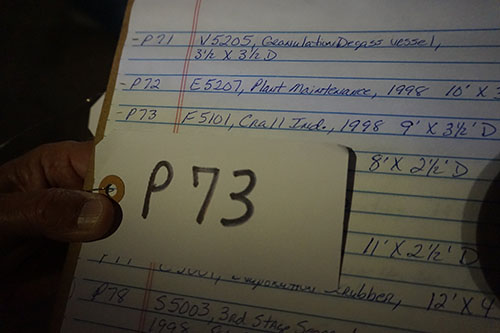 -P71 V5205, Granulation Degass vessel,
3½ X 3½ D
-P72 E5207, Plant Maintenance, 1998 10' X 3
-P73 F5101, Crall Ind., 1998 9' X 3½' D
8' X 2½' D
P 73
11' X 2½' D
Scrubber, 12' X 4
P78 S5003, 3rd Stage
1998